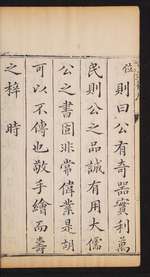 位則曰公有奇器實利萬
民則公之品誠有用大儒
公之書固非常偉業是胡
可以不傳也敬手繪而壽
之梓時